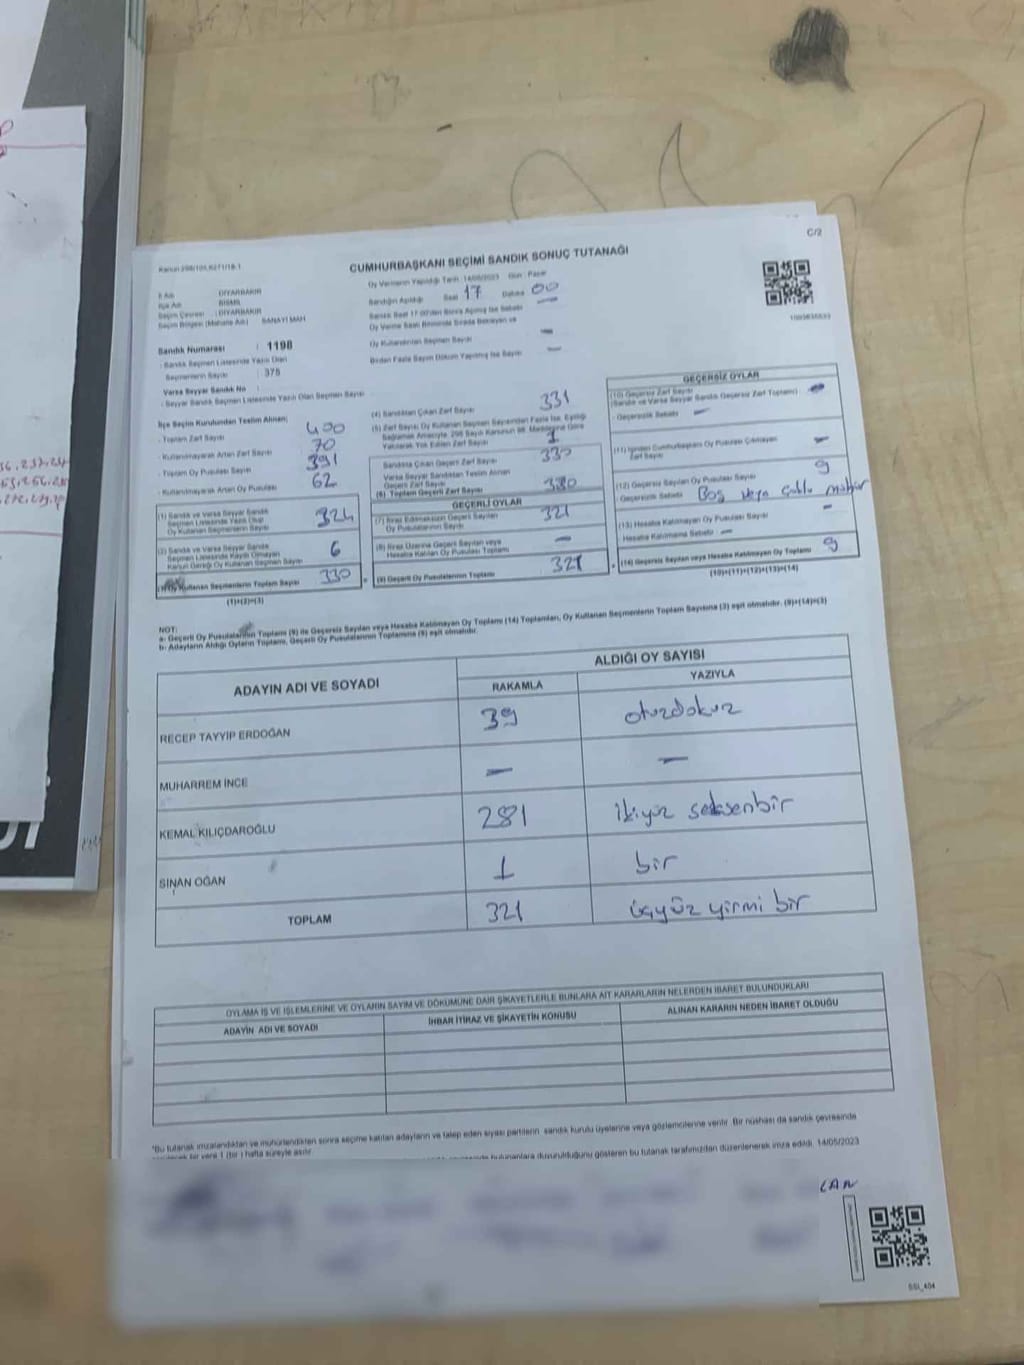 C/2
Kanun 298/105,6271/18-1
CUMHURBAŞKANI SEÇİMİ SANDIK SONUÇ TUTANAĞI
İl Adı : DİYARBAKIR
İlçe Adı : BİSMİL
Seçim Çevresi : DİYARBAKIR
Seçim Bölgesi (Mahalle Adı) : SANAYİ MAH
Sandık Numarası : 1198
Sandık Seçmen Listesinde Yazılı Olan
Seçmenlerin Sayısı : 375
Varsa Seyyar Sandık No :
- Seyyar Sandık Seçmen Listesinde Yazılı Olan Seçmen Sayısı
Oy Vermenin Yapıldığı Tarih 14/05/2023 Gün Pazar
Sandığın Açıldığı Saat 17 Dakika 00
Sandık Saat 17:00'den Sonra Açılmış İse Sebebi —
Oy Verme Saati Bitiminde Sırada Bekleyen ve
Oy Kullandırılan Seçmen Sayısı —
Birden Fazla Sayım Döküm Yapılmış İse Sayısı —
İlçe Seçim Kurulundan Teslim Alınan;
- Toplam Zarf Sayısı 400
- Kullanılmayarak Artan Zarf Sayısı 70
- Toplam Oy Pusulası Sayısı 391
- Kullanılmayarak Artan Oy Pusulası 62
(1) Sandık ve Varsa Seyyar Sandık
Seçmen Listesinde Yazılı Olup
Oy Kullanan Seçmenlerin Sayısı 324
(2) Sandık ve Varsa Seyyar Sandık
Seçmen Listesinde Kayıtlı Olmayan
Kanun Gereği Oy Kullanan Seçmen Sayısı 6
(3) Oy Kullanan Seçmenlerin Toplam Sayısı 330
(1)+(2)=(3)
(4) Sandıktan Çıkan Zarf Sayısı 331
(5) Zarf Sayısı Oy Kullanan Seçmen Sayısından Fazla İse, Eşitliği
Sağlamak Amacıyla, 298 Sayılı Kanunun 98. Maddesine Göre
Yakılarak Yok Edilen Zarf Sayısı 1
Sandıkta Çıkan Geçerli Zarf Sayısı 330
Varsa Seyyar Sandıktan Teslim Alınan
Geçerli Zarf Sayısı
(6) Toplam Geçerli Zarf Sayısı 330
GEÇERLİ OYLAR
(7) İtiraz Edilmeksizin Geçerli Sayılan
Oy Pusulalarının Sayısı 321
(8) İtiraz Üzerine Geçerli Sayılan veya
Hesaba Katılan Oy Pusulası Toplamı —
(9) Geçerli Oy Pusulalarının Toplamı 321
GEÇERSİZ OYLAR
(10) Geçersiz Zarf Sayısı
(Sandık ve Varsa Seyyar Sandık Geçersiz Zarf Toplamı)
- Geçersizlik Sebebi —
(11) İçinden Cumhurbaşkanı Oy Pusulası Çıkmayan
Zarf Sayısı —
(12) Geçersiz Sayılan Oy Pusulası Sayısı 9
- Geçersizlik Sebebi Boş veya Çoklu mühür
(13) Hesaba Katılmayan Oy Pusulası Sayısı —
Hesaba Katılmama Sebebi —
(14) Geçersiz Sayılan veya Hesaba Katılmayan Oy Toplamı 9
(10)+(11)+(12)+(13)=(14)
NOT:
a- Geçerli Oy Pusulalarının Toplamı (9) ile Geçersiz Sayılan veya Hesaba Katılmayan Oy Toplamı (14) Toplamları, Oy Kullanan Seçmenlerin Toplam Sayısına (3) eşit olmalıdır. (9)+(14)=(3)
b- Adayların Aldığı Oyların Toplamı, Geçerli Oy Pusulalarının Toplamına (9) eşit olmalıdır.
ADAYIN ADI VE SOYADI
ALDIĞI OY SAYISI
RAKAMLA YAZIYLA
RECEP TAYYİP ERDOĞAN 39 otuzdokuz
MUHARREM İNCE — —
KEMAL KILIÇDAROĞLU 281 ikiyüz seksenbir
SİNAN OĞAN 1 bir
TOPLAM 321 üçyüz yirmi bir
OYLAMA İŞ VE İŞLEMLERİNE VE OYLARIN SAYIM VE DÖKÜMÜNE DAİR ŞİKAYETLERLE BUNLARA AİT KARARLARIN NELERDEN İBARET BULUNDUKLARI
ADAYIN ADI VE SOYADI İHBAR İTİRAZ VE ŞİKAYETİN KONUSU ALINAN KARARIN NEDEN İBARET OLDUĞU
*Bu tutanak imzalandıktan ve mühürlendikten sonra seçime katılan adayların ve talep eden siyasi partilerin sandık kurulu üyelerine veya gözlemcilerine verilir. Bir nüshası da sandık çevresinde
bir yere 1 (bir) hafta süreyle asılır.
bulunanlara duyurulduğunu gösteren bu tutanak tarafımızdan düzenlenerek imza edildi. 14/05/2023
CAN
SSİ_404